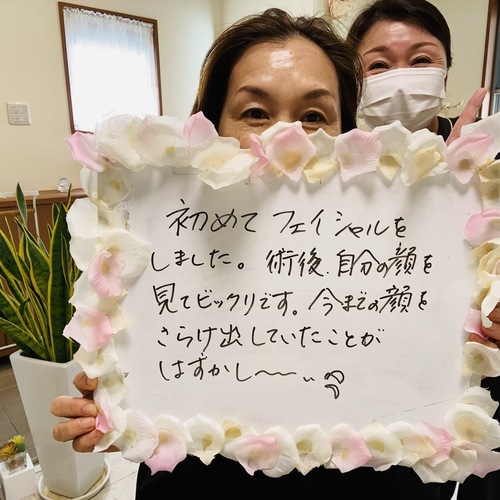 初めて フェイシャルを
しました。術後、自分の顔を
見てビックリです。今までの顔を
さらけ出していたことが
はずかし〜〜